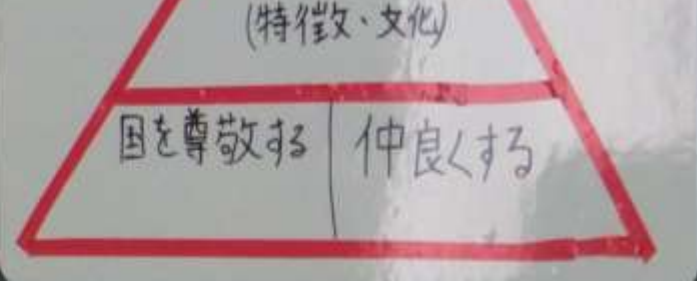 (特徴、文化)
国を尊敬する
仲良くする